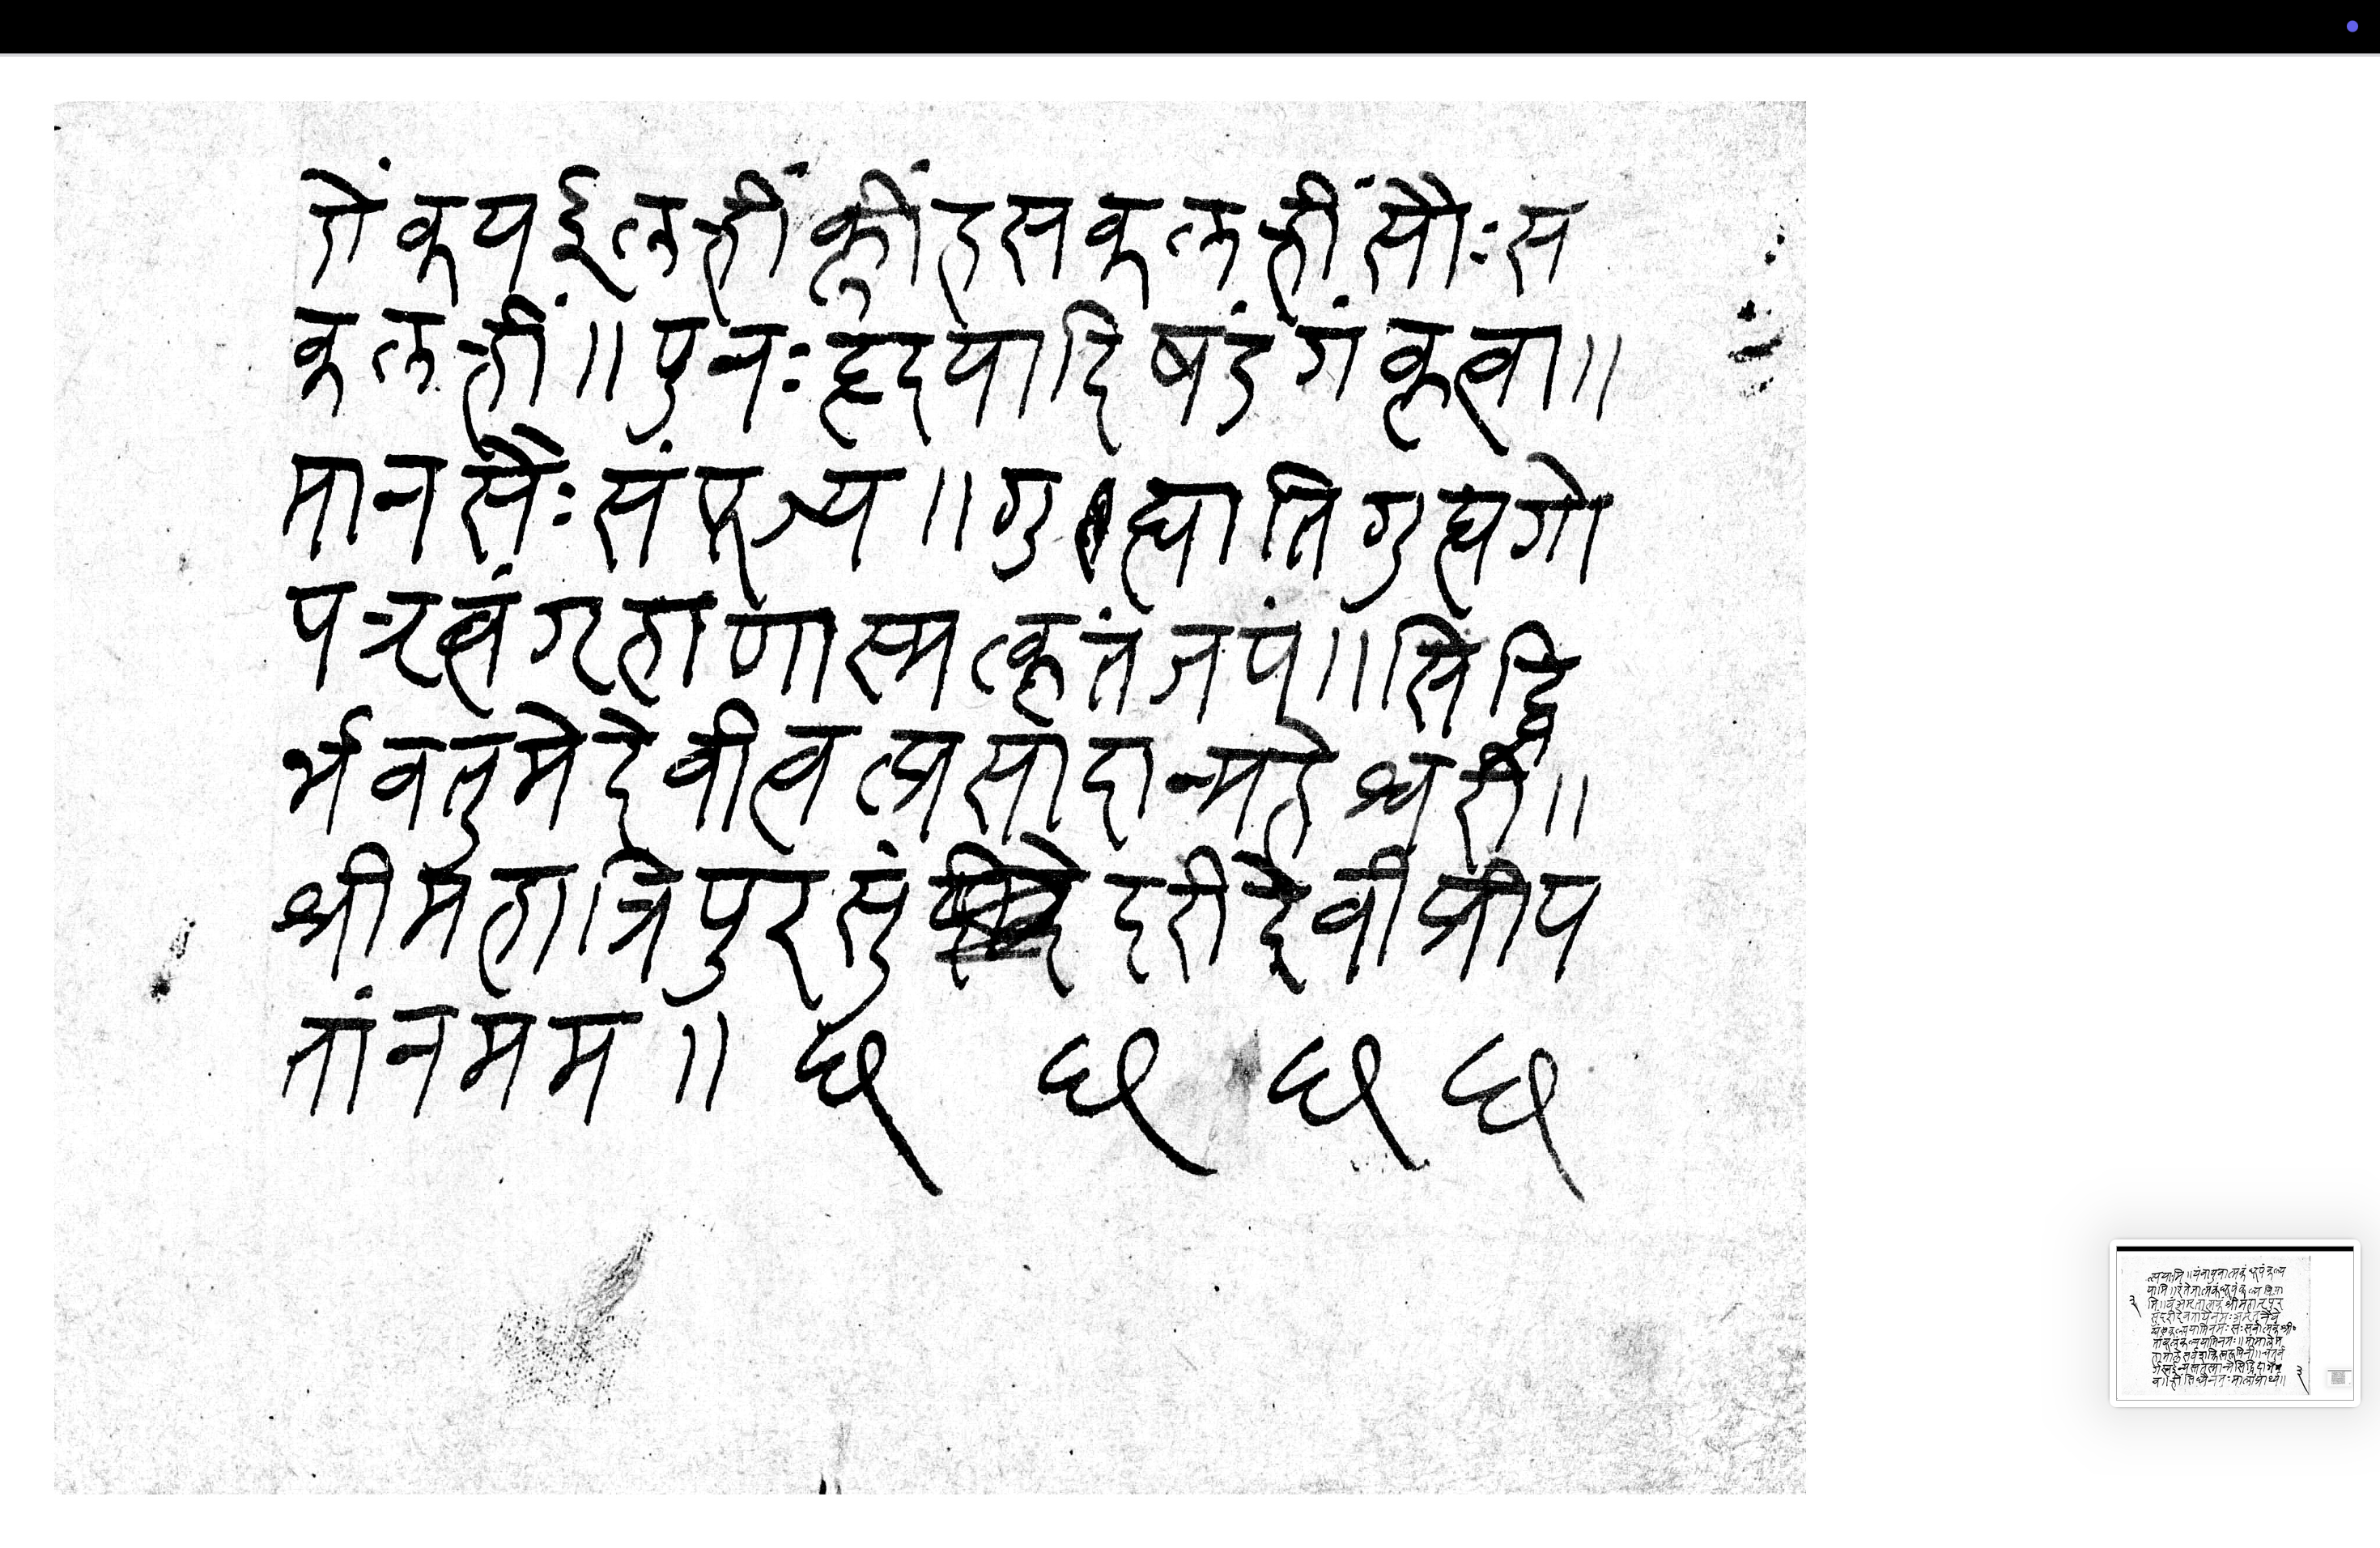 गें कयईलह्रीं क्लीं हसकलह्रीं सौः स
कलह्रीं ॥ पुनः हृदयादिषडंगं कृत्वा ॥
मानसैः संपूज्य ॥ गुह्यातिगुह्यगो
पत्रत्वं गृहाणास्मत्कृतं जपं ॥ सिद्धि
र्भवतु मे देवी त्वत्प्रसादान्महेश्वरी ॥
श्रीमहात्रिपुरसुं दरी देवी प्रीय
तां न मम ॥ छ छ छ छ